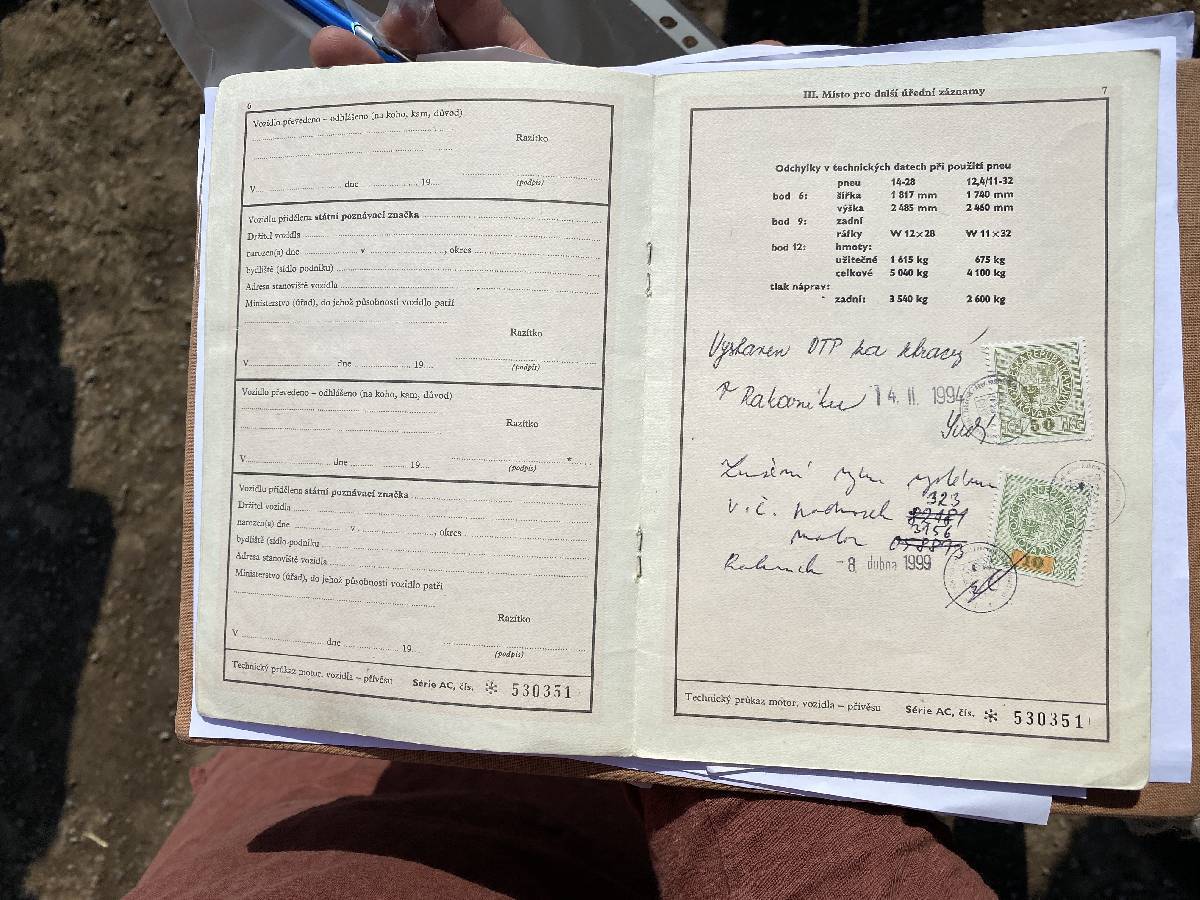 6
Vozidlo převedeno – odhlášeno (na koho, kam, důvod)
Razítko
V ........ dne ........ 19....
(podpis)
Vozidlu přidělena státní poznávací značka
Držitel vozidla
narozen(a) dne ........ v ........, okres
bydliště (sídlo podniku)
Adresa stanoviště vozidla
Ministerstvo (úřad), do jehož působnosti vozidlo patří
Razítko
V ........ dne ........ 19....
(podpis)
Vozidlo převedeno – odhlášeno (na koho, kam, důvod)
Razítko
V ........ dne ........ 19....
(podpis)
Vozidlu přidělena státní poznávací značka
Držitel vozidla
narozen(a) dne ........ v ........, okres
bydliště (sídlo podniku
Adresa stanoviště vozidla
Ministerstvo (úřad), do jehož působnosti vozidlo patří
Razítko
V ........ dne ........ 19....
(podpis)
Technický průkaz motor. vozidla – přívěsu Série AC, čís. * 530351
III. Místo pro další úřední záznamy 7
Odchylky v technických datech při použití pneu
pneu 14-28 12,4/11-32
bod 6: šířka 1 817 mm 1 740 mm
výška 2 485 mm 2 460 mm
bod 9: zadní
ráfky W 12×28 W 11×32
bod 12: hmoty:
užitečné 1 615 kg 675 kg
celkové 5 040 kg 4 100 kg
tlak náprav:
zadní: 3 540 kg 2 600 kg
Vystaven OTP za ztracený
v Rakovníku 14. II. 1994
50 Kč
323
v.č. 82181
3156
motor 058893
- 8. dubna 1999
10
Technický průkaz motor. vozidla – přívěsu Série AC, čís. * 530351